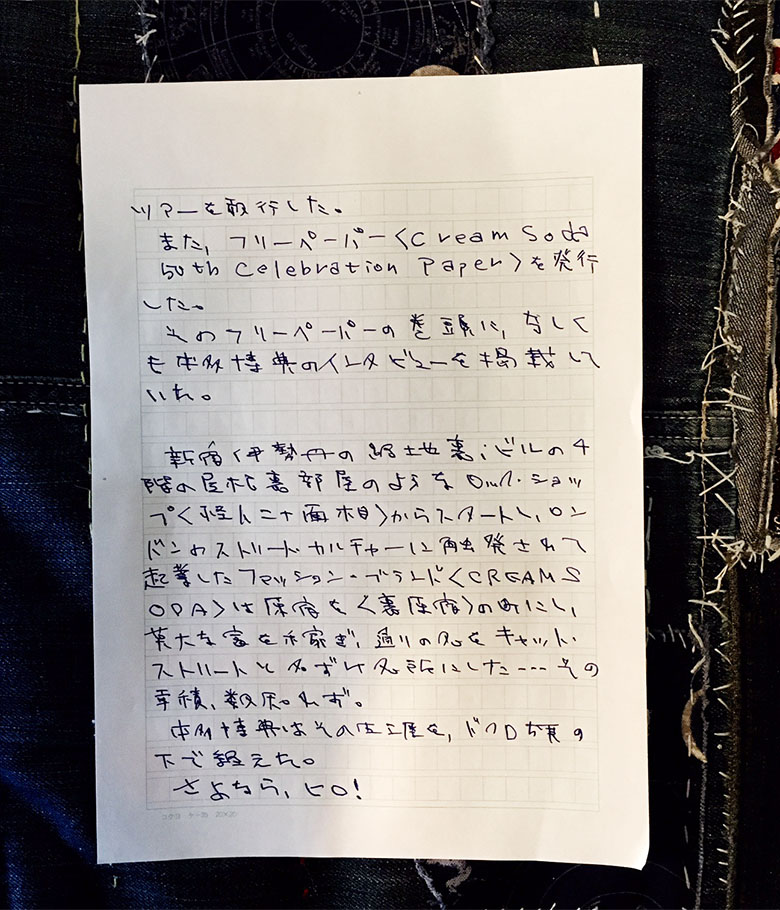 ツアーを敢行した。
また、フリーペーパー〈Cream Soda
50th Celebration Paper〉を発行
した。
そのフリーペーパーの巻頭に、奇しく
も本多博典のインタビューを掲載して
いた。
新宿伊勢丹の路地裏、ビルの4
階の屋根裏部屋のようなロック・ショッ
プ〈怪人二十面相〉からスタートし、ロン
ドンのストリートカルチャーに触発されて
起業したファッション・ブランド〈CREAM S
ODA〉は原宿を〈裏原宿〉の町にし、
莫大な富を稼ぎ、通りの名をキャット・
ストリートと名ずけ名所にした…その
業積、数知れず。
本多博典はその生涯を、ドクロ旗の
下で終えた。
さよなら、ヒロ!
コクヨ ケ-35 20×20